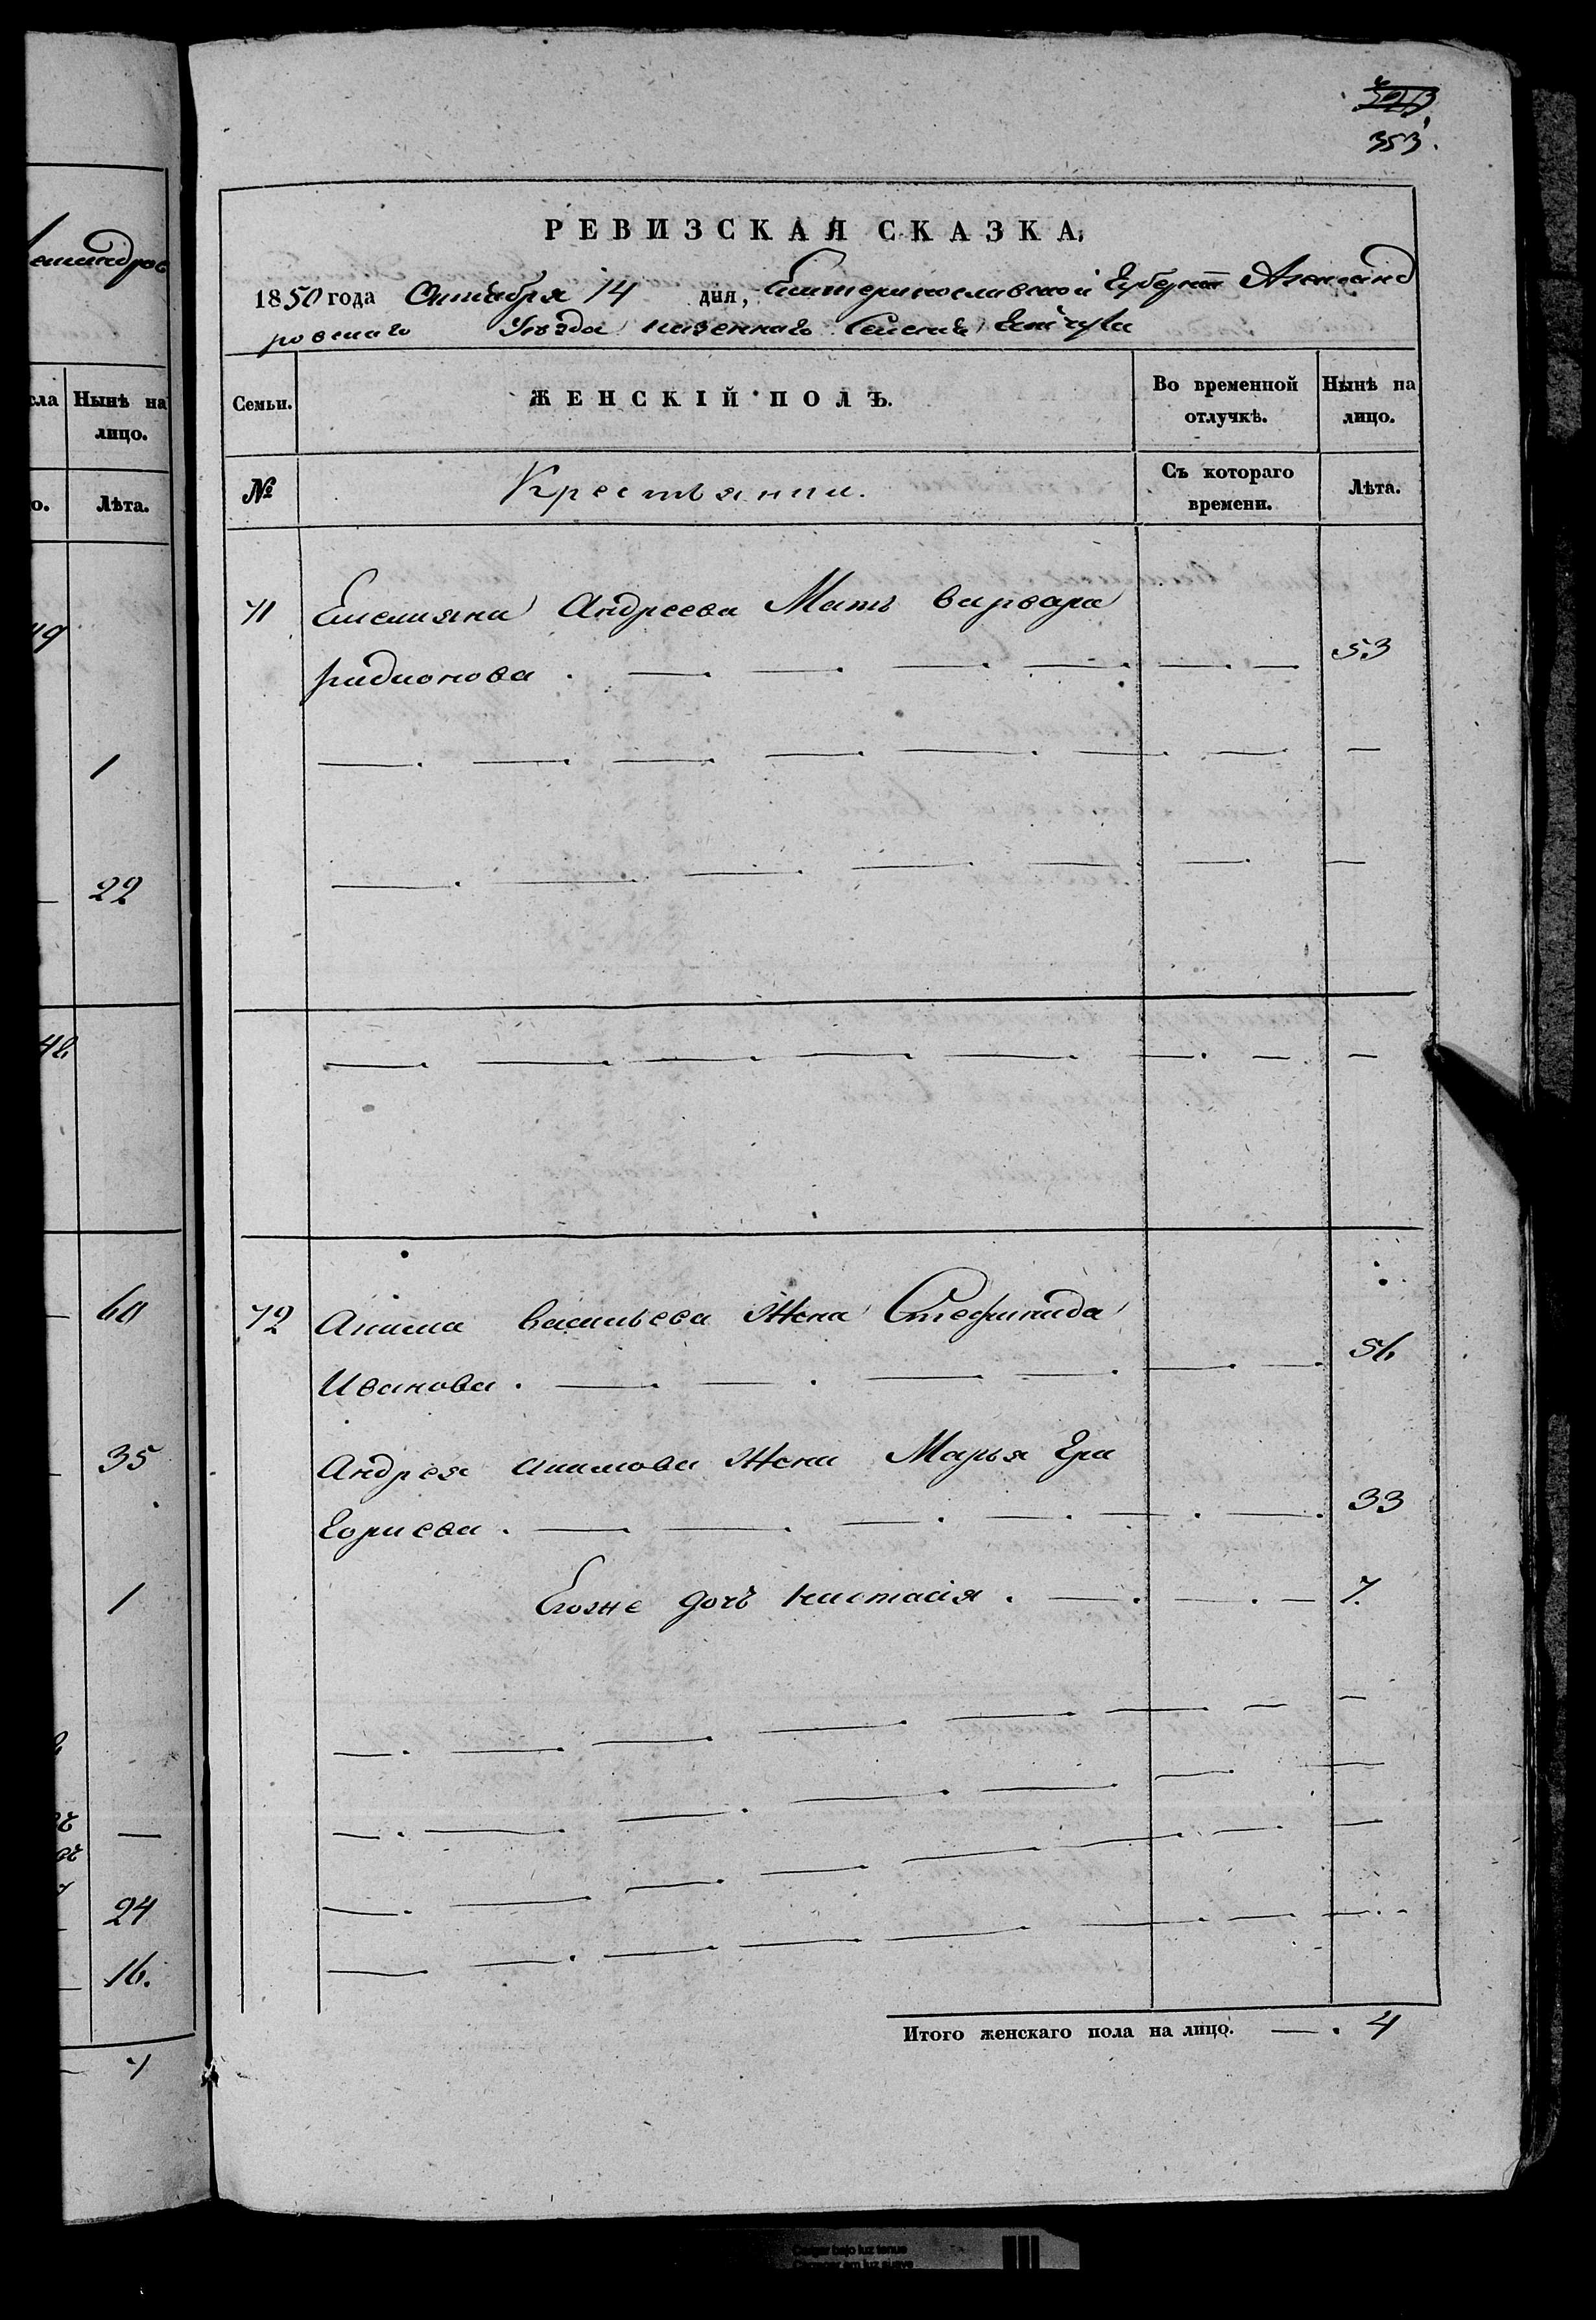 353.
РЕВИЗСКАЯ СКАЗКА,
1850 года Октября 14 дня, Екатеринославской Губерніи Александ
ровскаго Уѣзда казеннаго Селенія
Семьи. ЖЕНСКІЙ ПОЛЪ. Во временной отлучкѣ. Нынѣ на лицо.
№ Крестьянии. Съ котораго времени. Лѣта.
71 Емельяна Андреева Мать варвара
радионова . — . — . — . — . — . — 53
72 Акима васильева Жена Стефанида
Иванова . — . — . — . — . — . — . 56
Андрея акимова Жена Марья Гри
горьева . — . — . — . — . — . — . 33
Егоже дочь настасія . — . — . — 7.
Итого женскаго пола на лицо. — . 4
ександров
сла Нынѣ на лицо.
о. Лѣта.
49
1
22
46
60
35
1
24
16.